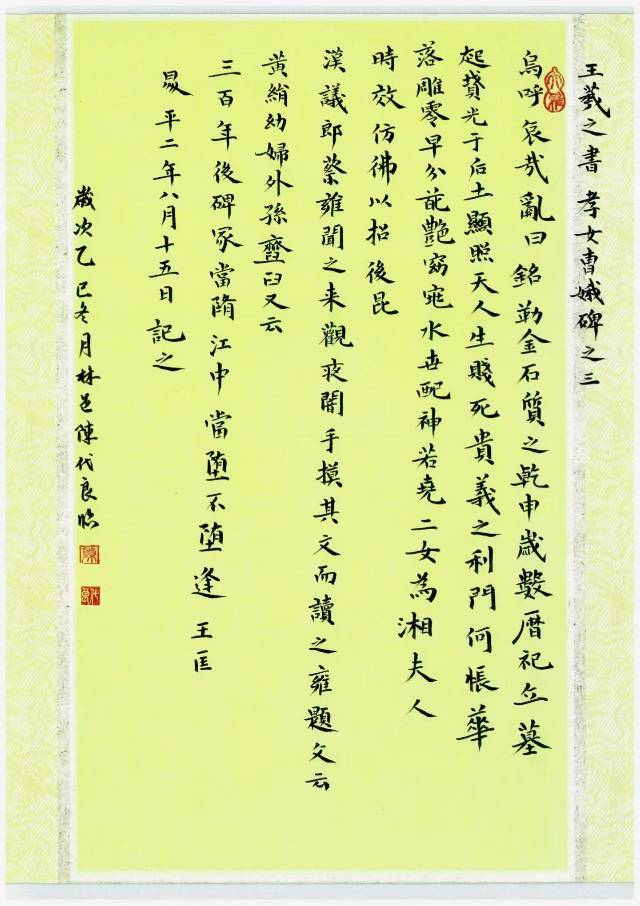 王羲之書 孝女曹娥碑之三
烏呼哀哉亂曰銘勒金石質之乾申歲數曆祀立墓
起贊光于后土顯照天人生賤死貴義之利門何悵華
落雕零早分葩艷窈窕永世配神若堯二女為湘夫人
時效仿彿以招後昆
漢議郎蔡雍聞之来觀夜闇手摸其文而讀之雍題文云
黃絹幼婦外孫齏臼又云
三百年後碑冢當隋江中當墮不墮逢王匡
昇平二年八月十五日記之
歲次乙巳冬月林邑陳代良臨